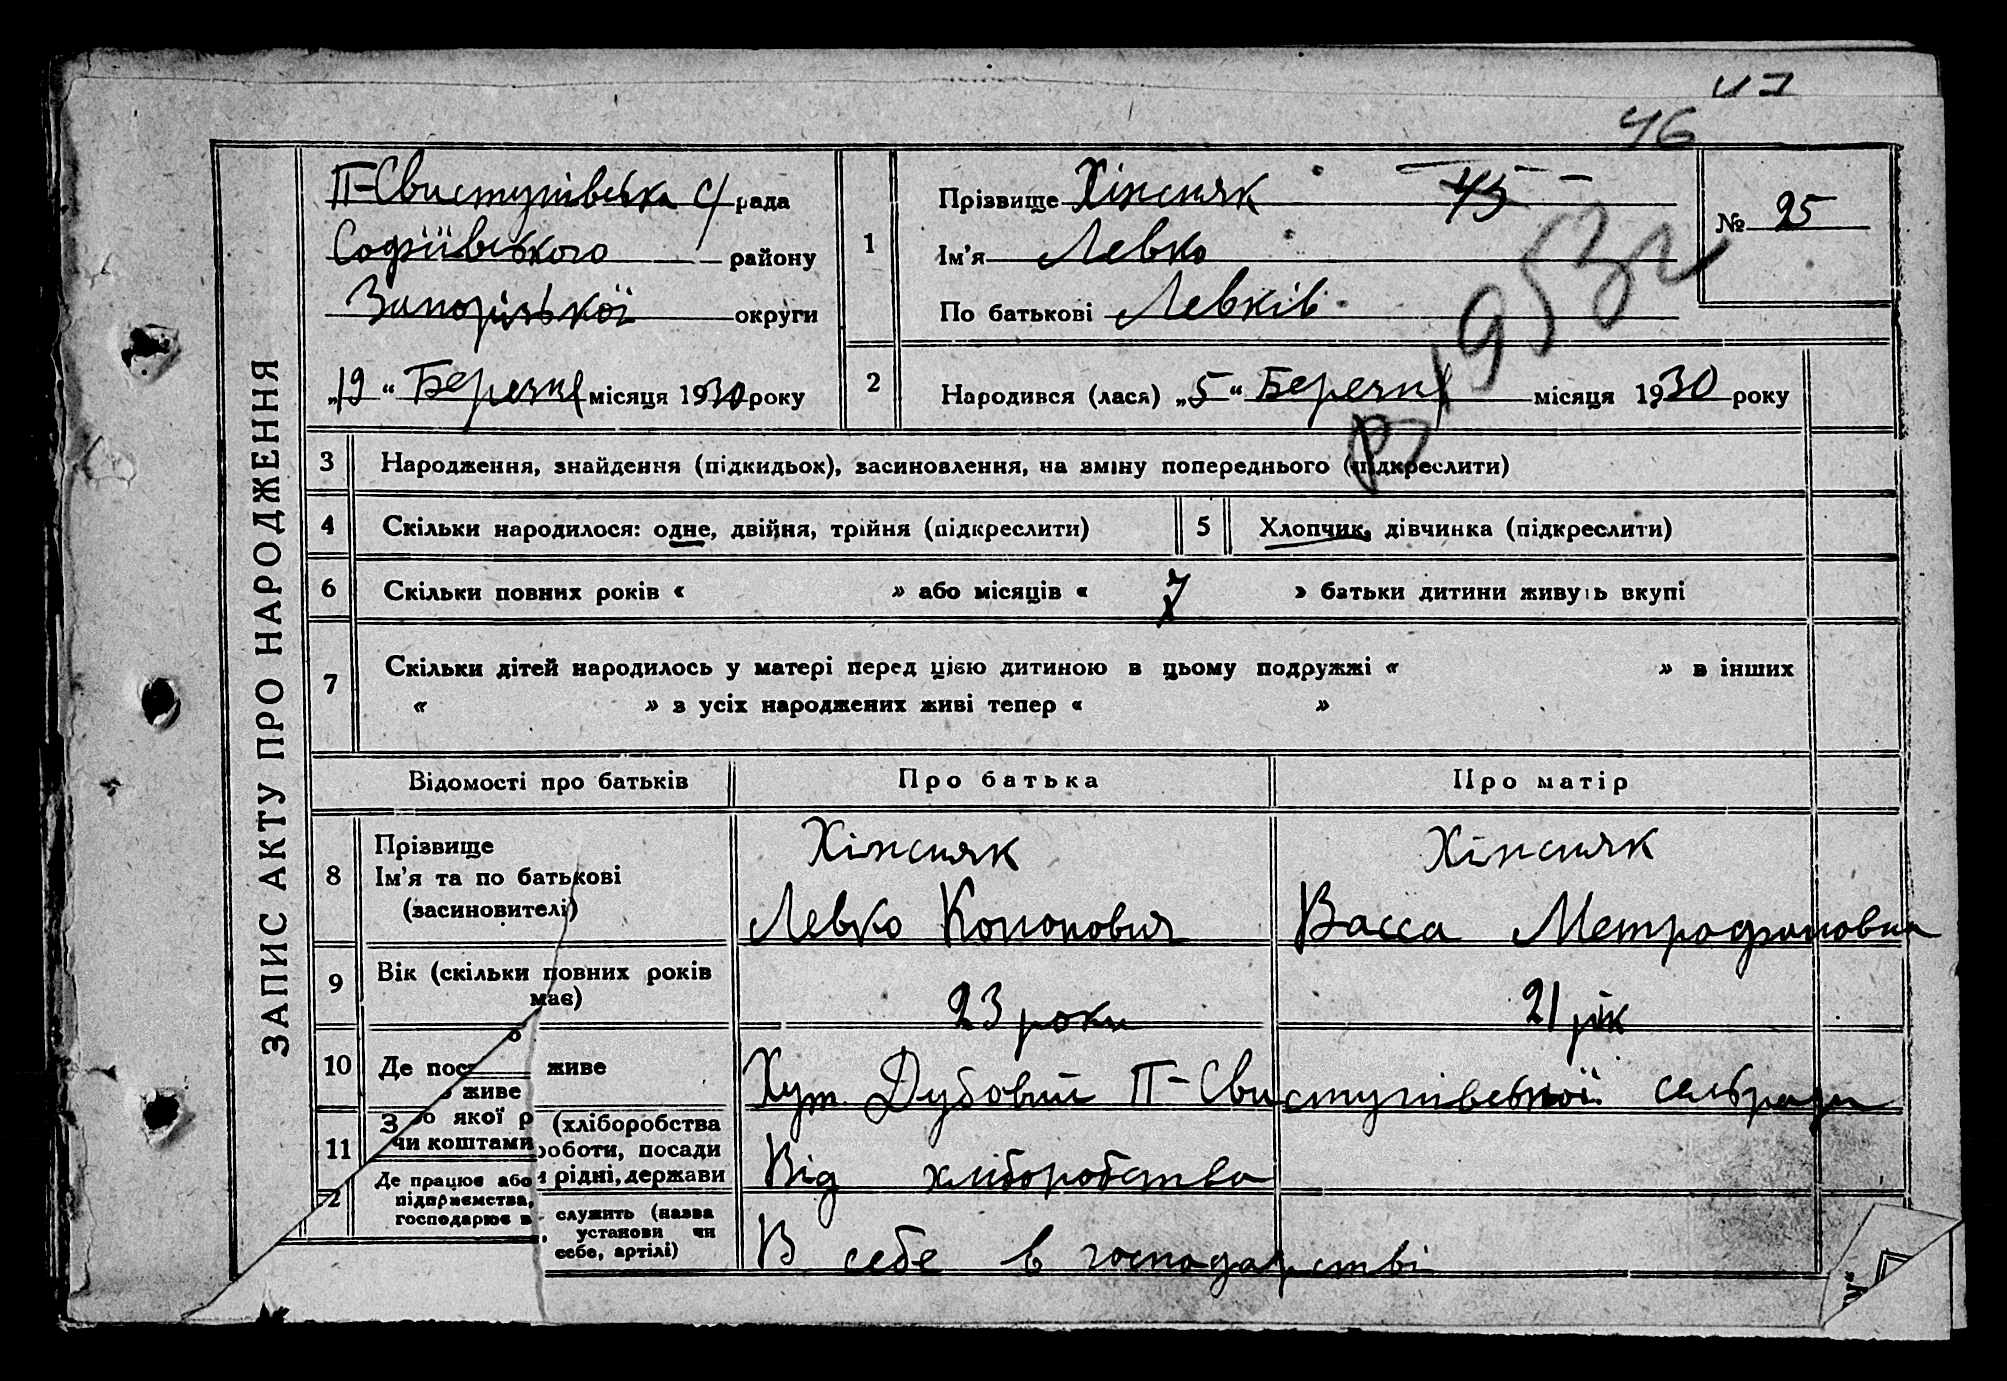 47
46
ЗАПИС АКТУ ПРО НАРОДЖЕННЯ
П-Свистунівська с/рада
Софіївського району
Запорізької округи
„19“ Березня місяця 1930 року
1
Прізвище 45
Ім’я Левко
По батькові Левків
№ 25
1953г
2
Народився (лася) „5“ Березня місяця 1930 року
3 Народження, знайдення (підкидьок), засиновлення, на зміну попереднього (підкреслити)
4 Скільки народилося: одне, двійня, трійня (підкреслити)
5 Хлопчик, дівчинка (підкреслити)
6 Скільки повних років « » або місяців « » батьки дитини живуть вкупі
7 Скільки дітей народилось у матері перед цією дитиною в цьому подружжі « » в інших
« » з усіх народжених живі тепер « »
Відомості про батьків Про батька Про матір
8 Прізвище
Ім’я та по батькові
(засиновителі)
Левко Кононович Васса Метрофановна
9 Вік (скільки повних років
має)
23 роки 21 рік
10 Де пост живе
живе
Хут. Дубовий П-Свистунівської сельради
11 З якої р (хліборобства
чи коштами роботи, посади
рідні, держави
Від хліборобства
2 Де працює або служить (назва
підприємства, установи чи
господарює в себе, артілі)
В себе в господарстві